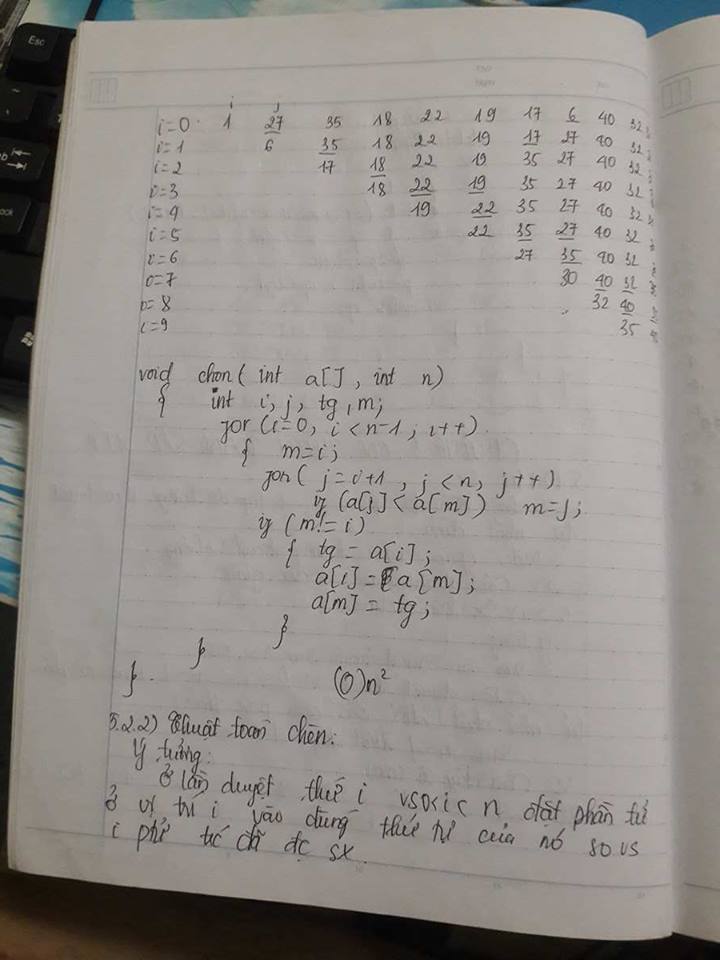 Esc
i j
i=0 1 27 35 18 22 19 17 6 40 32
i=1 6 35 18 22 19 17 27 40 32
i=2 17 18 22 19 35 27 40 32
i=3 18 22 19 35 27 40 32
i=4 19 22 35 27 40 32
i=5 22 35 27 40 32
i=6 27 35 40 32
i=7 30 40 32
i=8 32 40
i=9 35
void chon( int a[] , int n)
{ int i, j, tg, m;
for (i=0, i<n-1, i++)
{ m=i;
for( j=i+1 , j<n, j++)
if (a[j]<a[m]) m=j;
if (m!=i)
{ tg = a[i];
a[i]= a[m];
a[m] = tg;
}
}
}
(0)n²
5.2.2) Thuật toán chèn:
Ý tưởng:
Ở lần duyệt thứ i vs 0<i<n đặt phần tử
ở vị trí i vào đúng thứ tự của nó so vs
i đã đc sx.